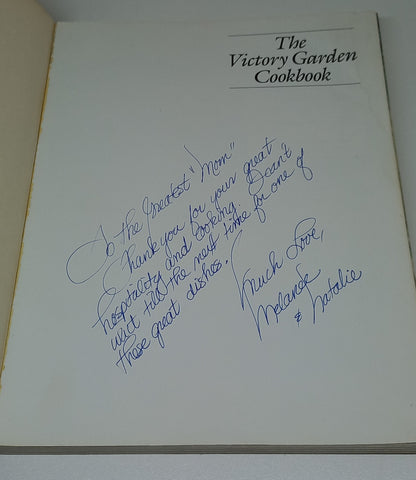 The
Victory Garden
Cookbook
To the Greatest "Mom"
Thank you for your great
hospitality and cooking. Dean't
wait till the next time for one of
these great dishes.
Much Love,
Melande
& Natalie